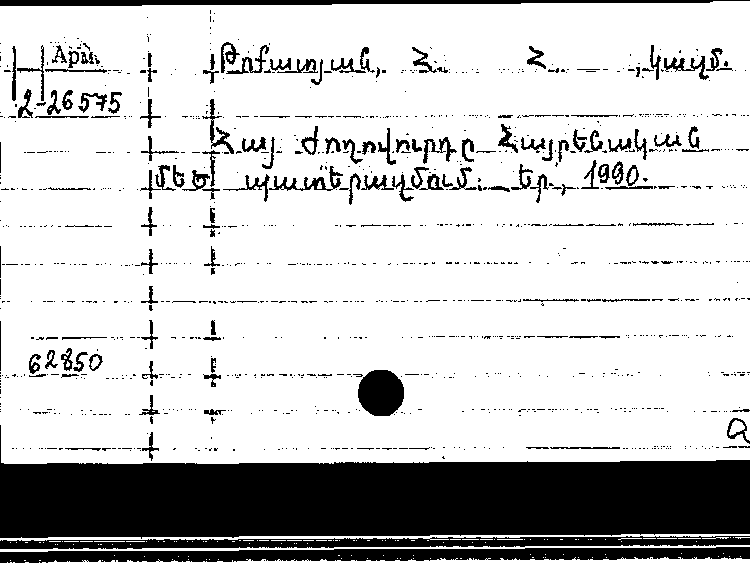 Арм.
2-26575
Թոփատյան, Հ. Հ. , կազմ.
Հայ ժողովուրդը Հայրենական
մեծ պատերազմում. Եր., 1990.
62850